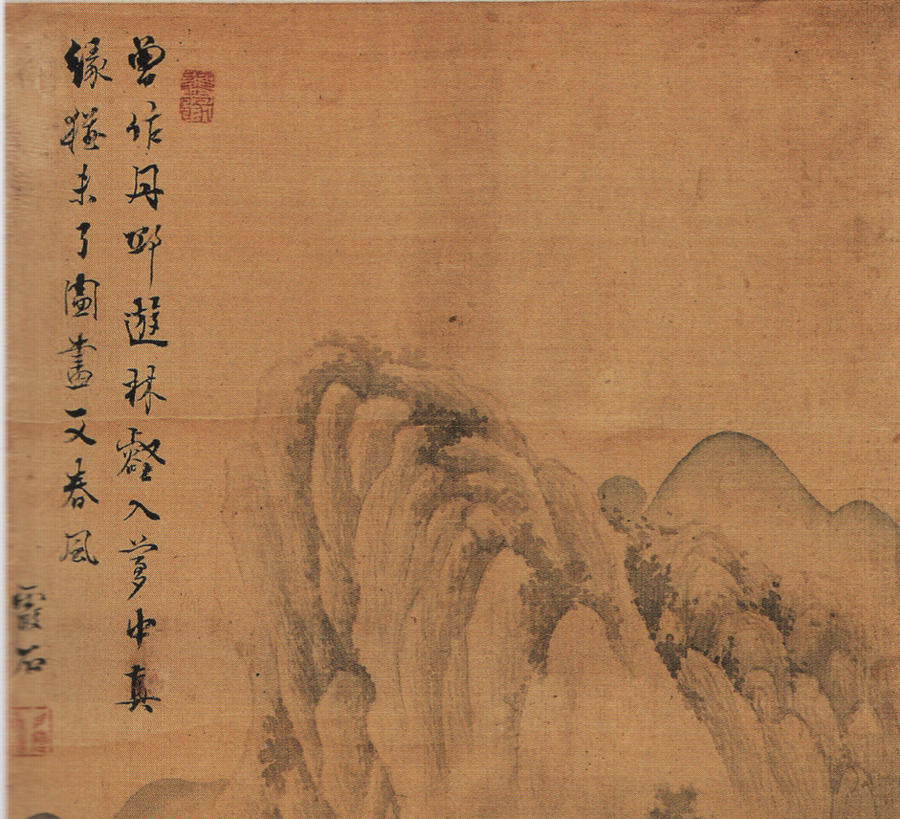 曾作丹邱遊林壑入夢中真
緣猶未了圖畫又春風
霞石